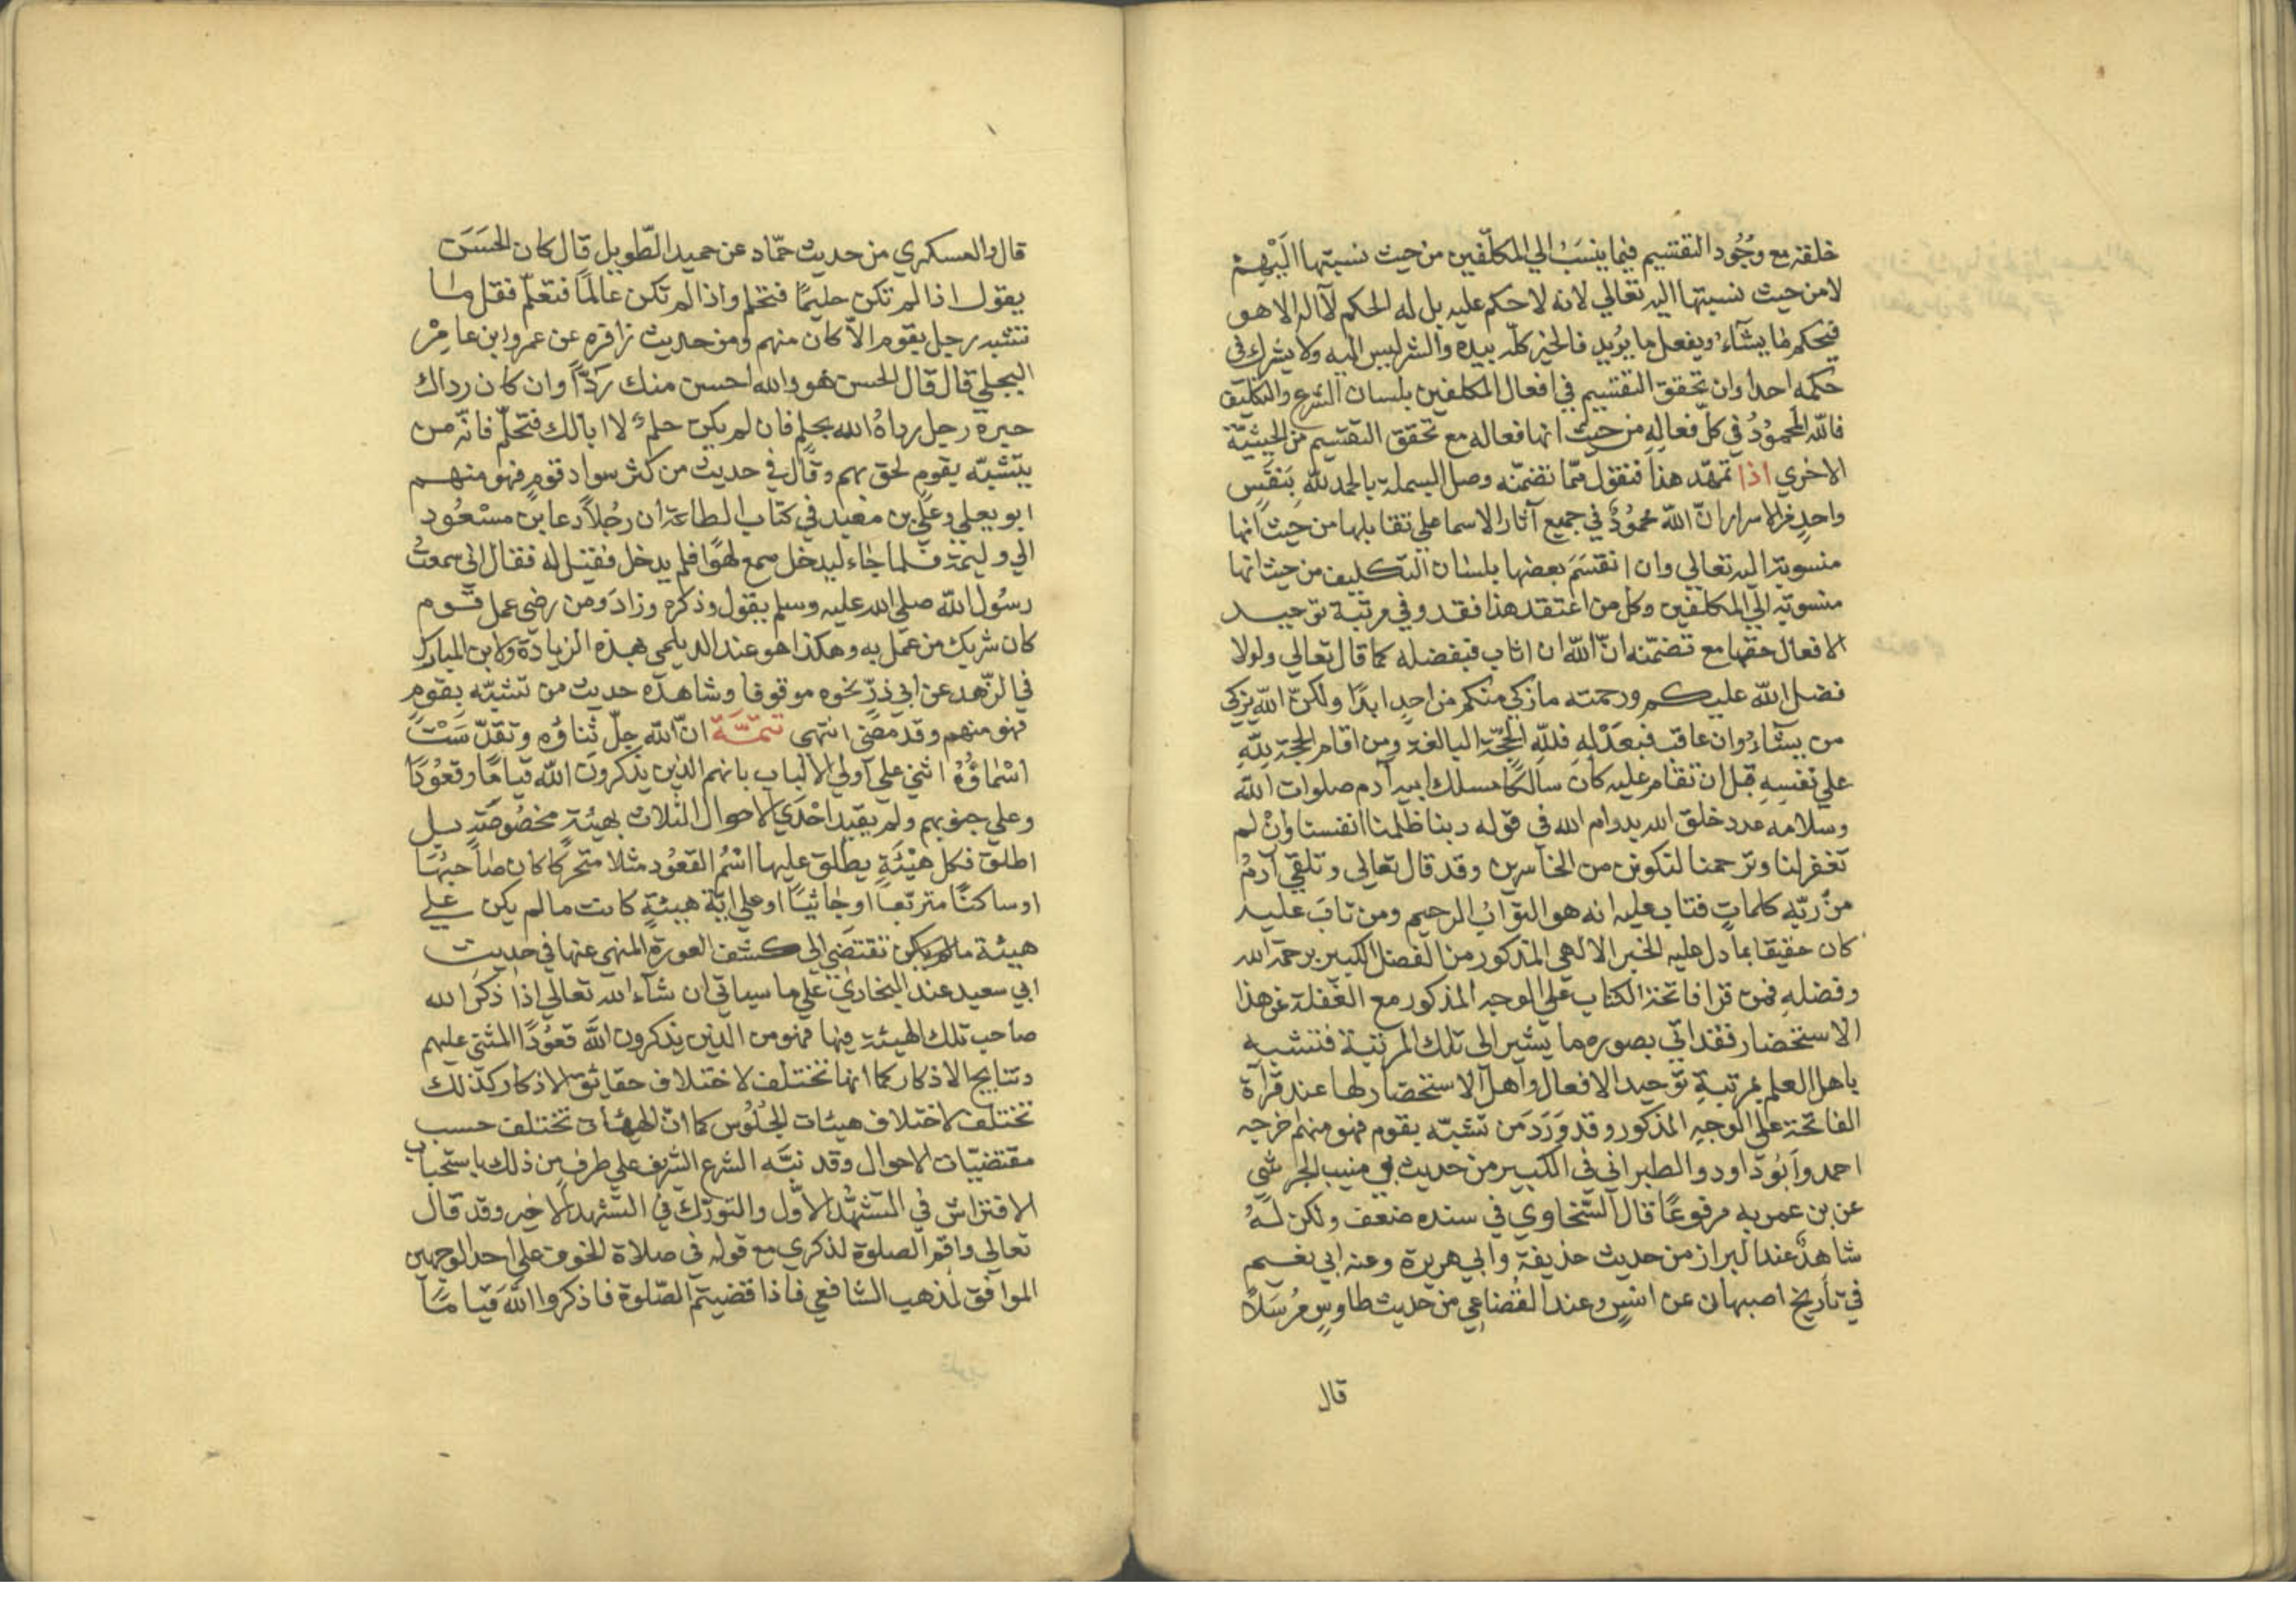 خلقته مع وجُود التقسيم فيما ينسَبُ الي المكلّفين من حيث نسبتها اليْهِمْ
لا من حيث نسبتها اليه تعالي لانه لا حكم عليه بل له الحكم لا اله الا هو
فيحكم ما يشآء ويفعل ما يُريد فالخير كلّه بيده والشر ليس اليه ولا يشرك في
حكمه احدا وان تحقق التقسيم في افعال المكلفين بلسان الشرع والتكليف
فاللّه المحمُودُ في كلّ فعالِهِ من حيث انها فعاله مع تحقق التقسيم من الحيثيّة
الاخري اذا تمهّد هذا فنقول ممّا تضمّنه وصل البسملة بالحمد للّه بِنَفَسٍ
واحدٍ من الاسرار انّ اللّه محمُودٌ في جميع آثار الاسما علي تقابلها من حيث انها
منسوبة اليه تعالي وان انقسَمَ بعضها بلسان التكليف من حيث انها
منسوبة الي المكلفين وكل من اعتقد هذا فقد وفي مرتبة توحيد
الافعال حقها مع تضمّنه انّ اللّه ان اثاب فبفضله كما قال تعالي ولولا
فضل اللّه عليكم ورحمته ما زكي منكم من احدٍ ابدًا ولكنّ اللّه يزكي
من يشآءُ وان عاقب فبعَدْلِهِ فللّهِ الحجّة البالغة ومن اقام الحجة للّهِ
علي نفسِهِ قبل ان تقام عليه كان سالكًا مسلك ابيه آدم صلوات اللّه
وسلامه عدد خلق الله بدوام الله في قوله ربنا ظلمنا انفسنا وانْ لم
تغفر لنا وترحمنا لنكونن من الخاسرين وقد قال تعالى وتلقي آدمُ
منْ ربّهِ كلماتٍ فتاب عليه انه هو التوّابُ الرحيم ومن تابَ عليه
كان حقيقا بما دل عليه الخبر الالهي المذكور من الفضل الكبير برحمة الله
وفضلهِ فمن قرا فاتحة الكتاب علي الوجه المذكور مع الغفلة عن هذا
الاستحضار فقد اتي بصوره ما يشير الى تلك المرتبة فتشبه
باهل العلم بمرتبةِ توحيد الافعال واهل الاستحضار لها عند قرآة
الفاتحة علي الوجهِ المذكور وقد وَرَدَ مَن تشبّه بقوم فهو منهم خرجه
احمد وابُو داود والطبراني في الكبير من حديث ابي منيب الجرشي
عن بن عمر به مرفوعًا قال السّخاوي في سنده ضعف ولكن لهُ
شاهدٌ عند البزار من حديث حذيفة وابي هريرة وعند ابي نعيم
في تأريخ اصبهان عن انسٍ وعند القُضاعي من حديث طاوسٍ مُرسَلاً
قال
قال والعسكري من حديث حمّاد عن حميد الطّويل قال كان الحسَن
يقول اذا لم تكن حليمًا فتحلم واذا لم تكن عالمًا فتعلّم فقل ما
تشبه رجل بقوم الاّ كان منهم ومن حديث زافره عن عمرو ابن عامِرْ
البجلي قال قال الحسن هو والله احسن منك رَدًّا وان كان رداك
حيرة رجل رداهُ الله بحلمٍ فان لم يكن حلمٌ لا ابالك فتحلّم فانّه من
يتشبّه بقومٍ لحق بهم وقال في حديث من كثر سواد قومٍ فهو منهم
ابو يعلي وعليّ بن معبد في كتاب الطاعة ان رجُلاً دعا ابن مسْعُود
الي وليمة فلما جاء ليدخل سمع لهوًا فلم يدخل فقيل له فقال اني سمعتُ
رسُول اللّه صلي الله عليه وسلم يقول وذكره وزادَ ومن رضي عمل قوم
كان شريك من عمل به وهكذا هو عند الديلمي بهذه الزيادة ولابن المبارك
في الزّهد عن ابي ذرّ نحوه موقوفا وشاهده حديث من تشبّه بقومٍ
فهو منهم وقد مضي انتهى تتمّة انّ اللّه جلّ ثناؤه وتقدّسَتْ
اسْماؤُهُ اثني علي أولي الالباب بانهم الذين يذكرون اللّه قيامًا وقعُودًا
وعلي جنوبهم ولم يقيد احْدَي الاحوال الثلاث بهيئةٍ مخصُوصَةٍ بل
اطلق فكل هيْئَةٍ يطلق عليها اسْمُ القعُود مثلا متحركا كان صاحبُهَا
او ساكنًا متربّعاً او جاثيًا او علي ايّة هيئةٍ كانت ما لم يكن علي
هيئة ما لم يكن تقتضي الى كشف العورة المنهي عنها في حديث
ابي سعيد عند البخاريّ علي ما سياتي ان شآء الله تعالي اذا ذكَر الله
صاحب تلك الهيئة فيها فهو من الذين يذكرون اللّه قعوُدًا المثني عليهم
ونتايج الاذكار كما انها تختلف لاختلاف حقائق الاذكار كذلك
تختلف لاختلاف هيئات الجُلُوس كما انّ الهيئات تختلف حسب
مقتضيّات الاحوال وقد نبّه الشرع الشريف علي طرفٍ من ذلك باستحباب
الافتراش في التشهُّد الأوّل والتورّك في التشهد الاخير وقد قال
تعالي واقم الصلوة لذكري مع قوله في صلاة الخوف علي احد الوجهين
الموافق لمذهب الشافعي فاذا قضيتم الصّلوة فاذكروا اللّه قيامًا